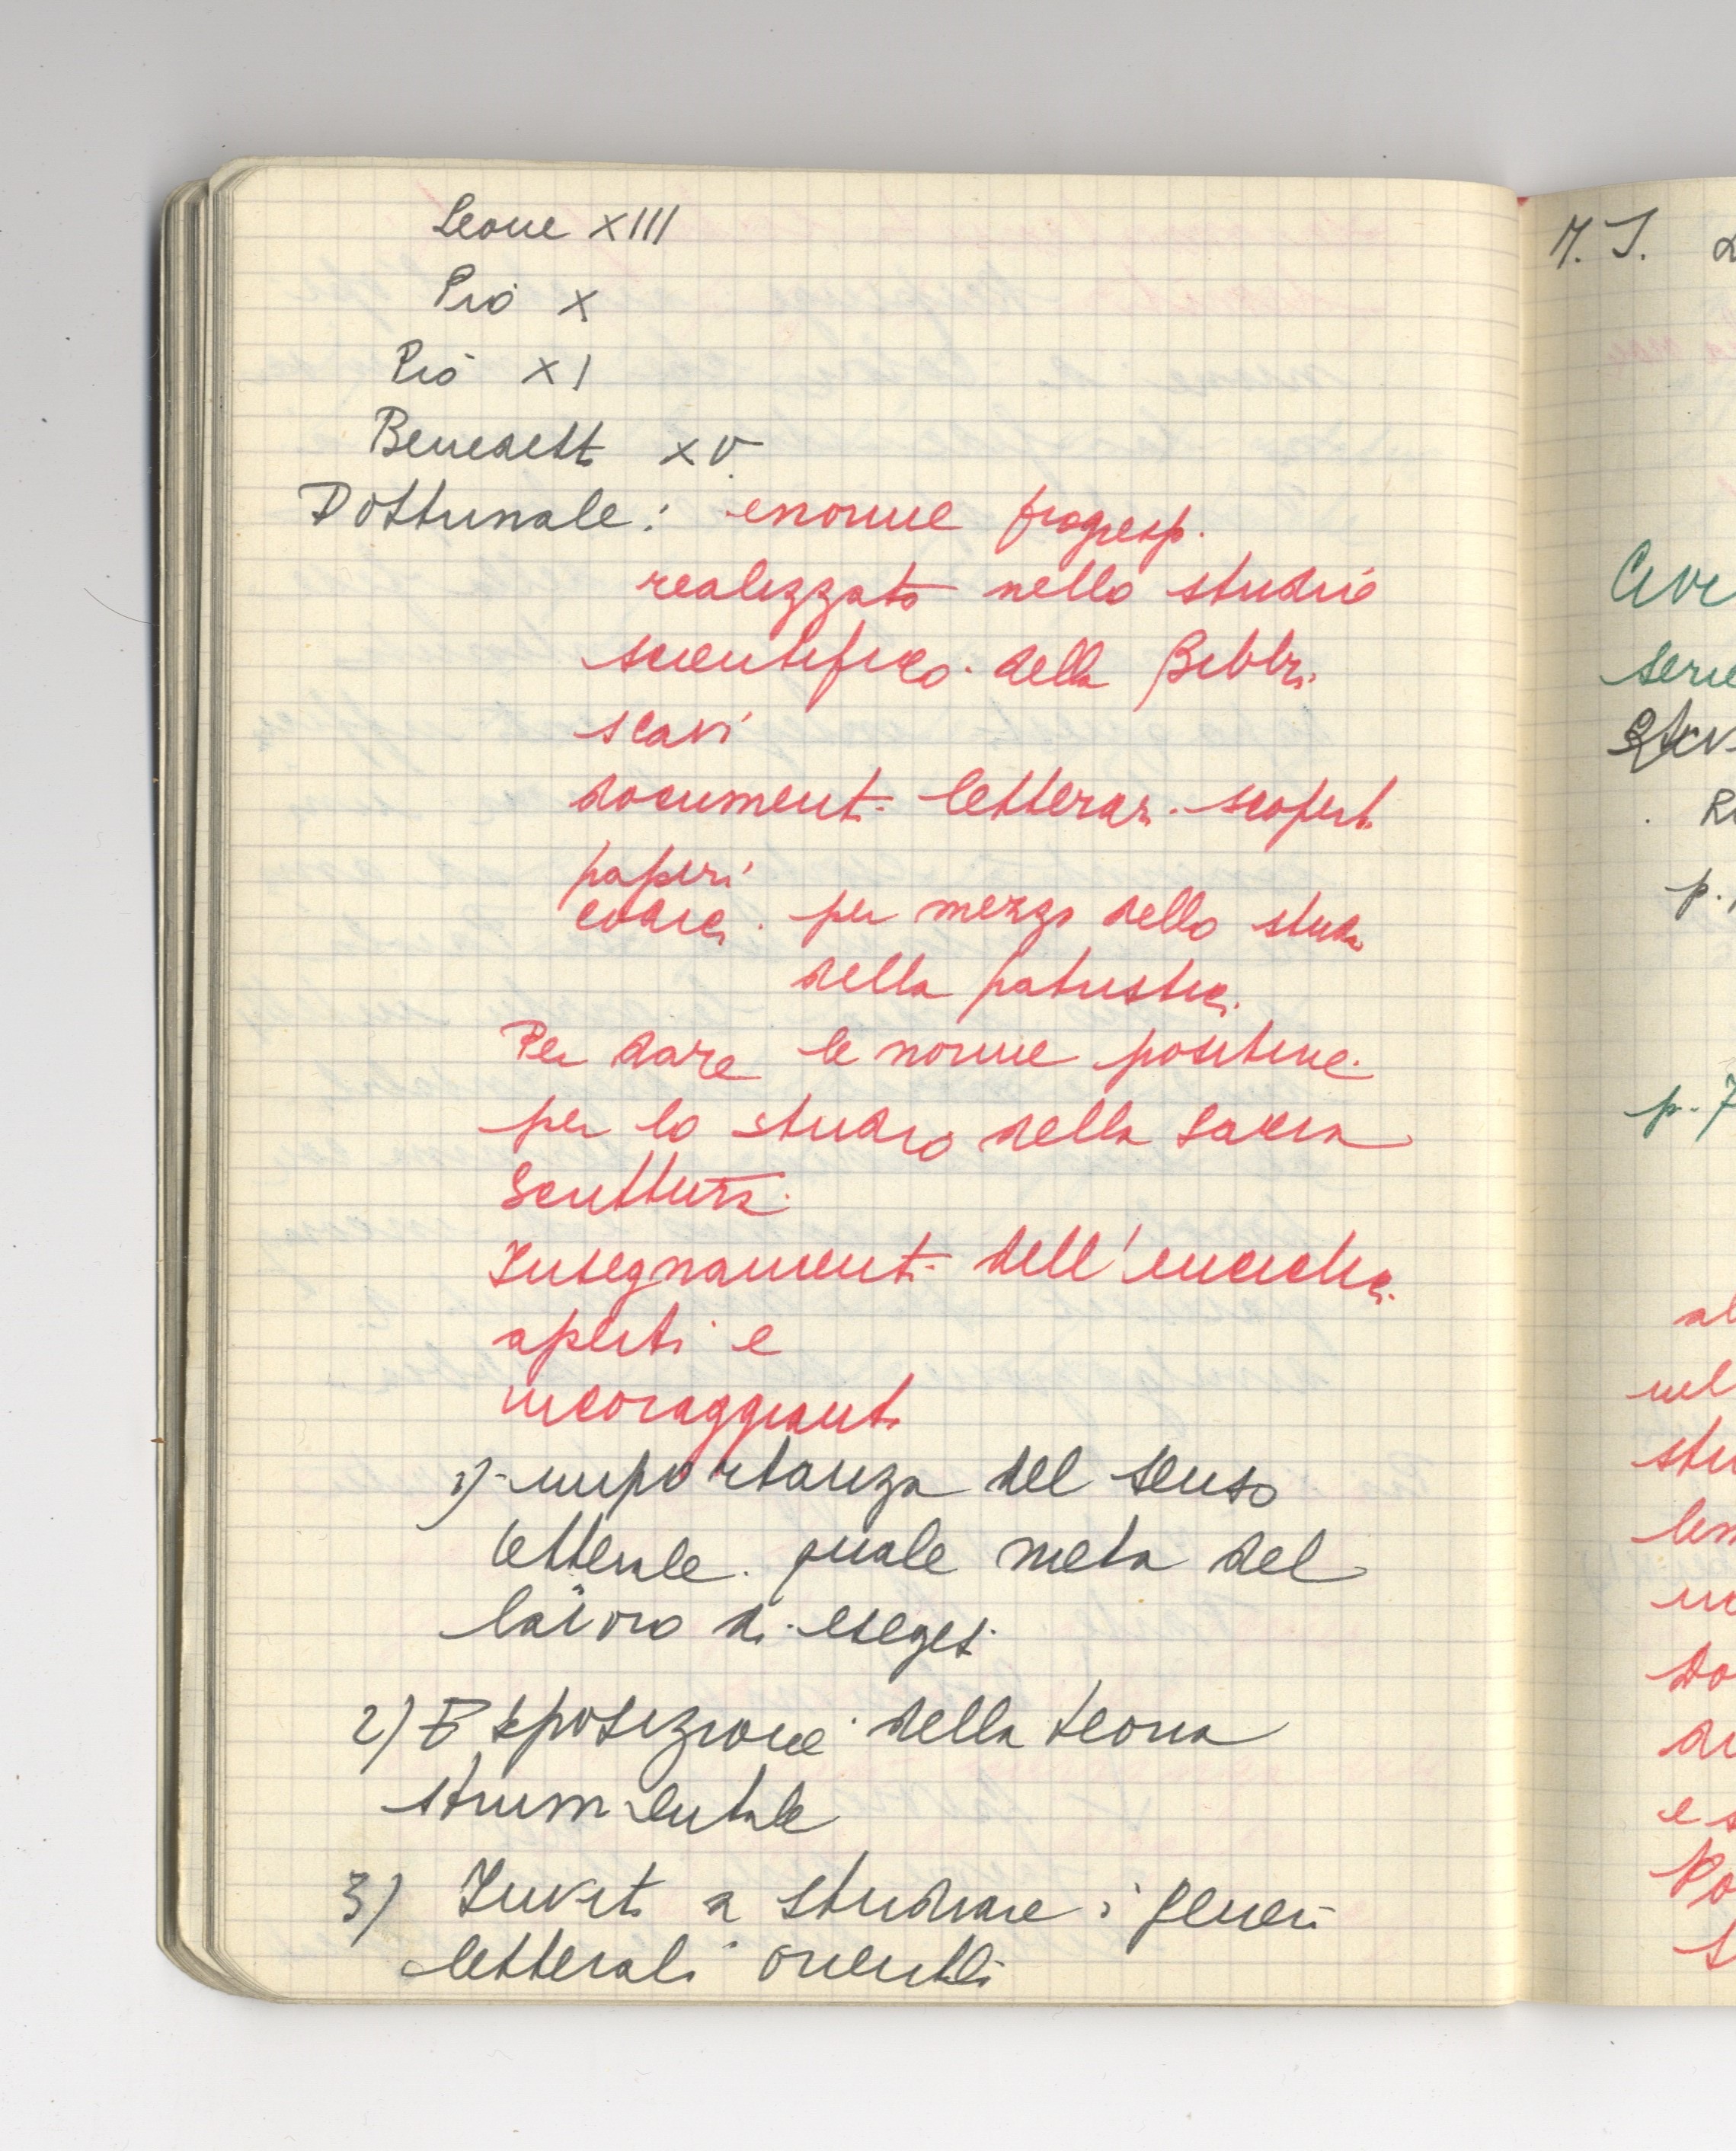 Leone XIII
Pio X
Pio XI
Benedetto XV
Dottrinale: enorme progresso
realizzato nello studio
scientifico della Bibbia
scavi
documenti letterari scoperti
papiri
codici per mezzo dello studio
della patristica
Per dare le norme positive
per lo studio della Sacra
Scrittura
Insegnamenti dell'enciclica
aperti e
incoraggianti
1) importanza del senso
letterale quale meta del
lavoro di esegesi
2) Esposizione della teoria
strumentale
3) Invito a studiare i generi
letterali orientali
p. 7